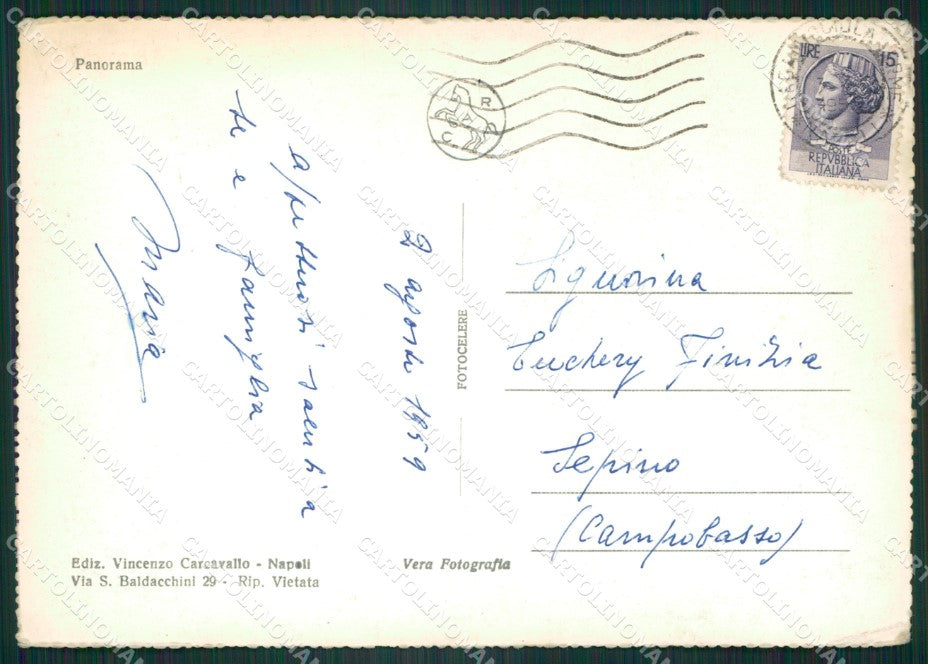 Panorama
LIRE 15
POSTE
REPVBBLICA
ITALIANA
2 agosto 1959
affettuosi saluti a
te e famiglia
Maria
FOTOCELERE
Signorina
Tuchery Finizia
Sepino
(Campobasso)
Ediz. Vincenzo Carcavallo - Napoli
Via S. Baldacchini 29 - Rip. Vietata
Vera Fotografia
CARTOLINOMANIA